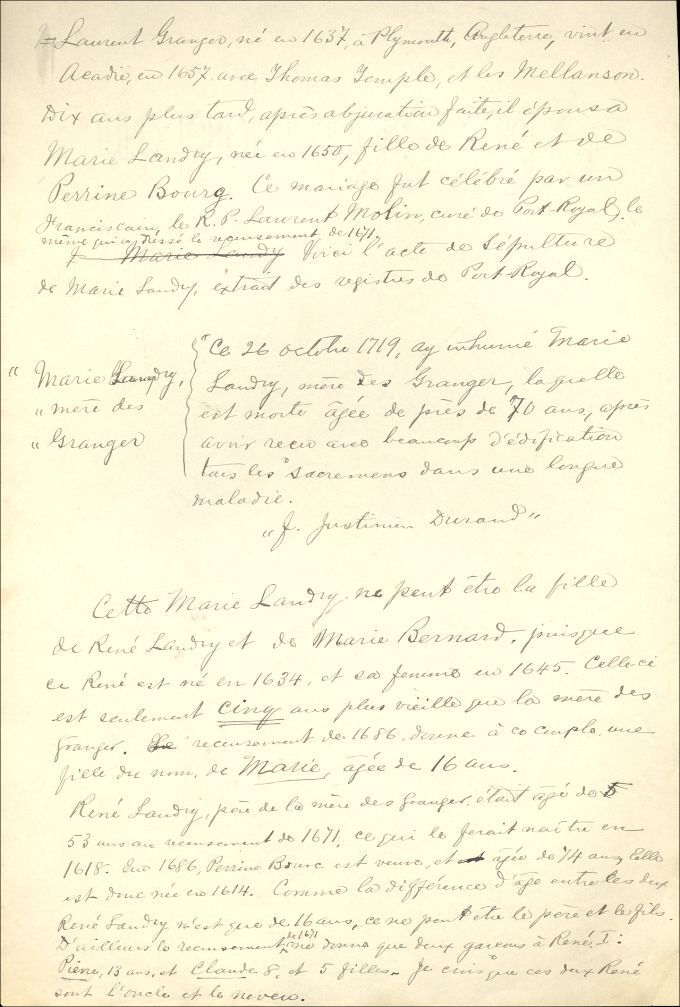 Laurent Granger, né en 1637, à Plymouth, Angleterre, vint en
Acadie, en 1657 avec Thomas Temple, et les Mellanson.
Dix ans plus tard, après abjuration faite, il épousa
Marie Landry, née en 1650, fille de René et de
Perrine Bourg. Ce mariage fut célébré par un
Franciscain, le R. P. Laurent Molin, curé de Port-Royal, le
même qui a dressé le recensement de 1671.
Marie Landry Voici l'acte de sépulture
de Marie Landry, extrait des registres de Port-Royal.
"Marie Landry,
"mère des
"Granger
"Ce 26 octobre 1719, ay inhumé Marie
Landry, mère des Granger, laquelle
est morte âgée de près de 70 ans, après
avoir reçu avec beaucoup d'édification
tous les sacremens dans une longue
maladie.
"F. Justinien Durand"
Cette Marie Landry ne peut être la fille
de René Landry et de Marie Bernard, puisque
ce René est né en 1634, et sa femme en 1645. Celle-ci
est seulement cinq ans plus vieille que la mère des
Granger. Le recensement de 1686, donne à ce couple, une
fille du nom de Marie, âgée de 16 ans.
René Landry, père de la mère des Granger, était âgé de
53 ans au recensement de 1671, ce qui le ferait naître en
1618. En 1686, Perrine Bourc est veuve, et âgée de 74 ans, Elle
est donc née en 1614. Comme la différence d'âge entre les deux
René Landry n'est que de 16 ans, ce ne peut être le père et le fils.
D'ailleurs le recensement de 1671 ne donne que deux garçons à René, I:
Pierre, 13 ans, et Claude 8, et 5 filles. Je crois que ces deux René
sont l'oncle et le neveu.